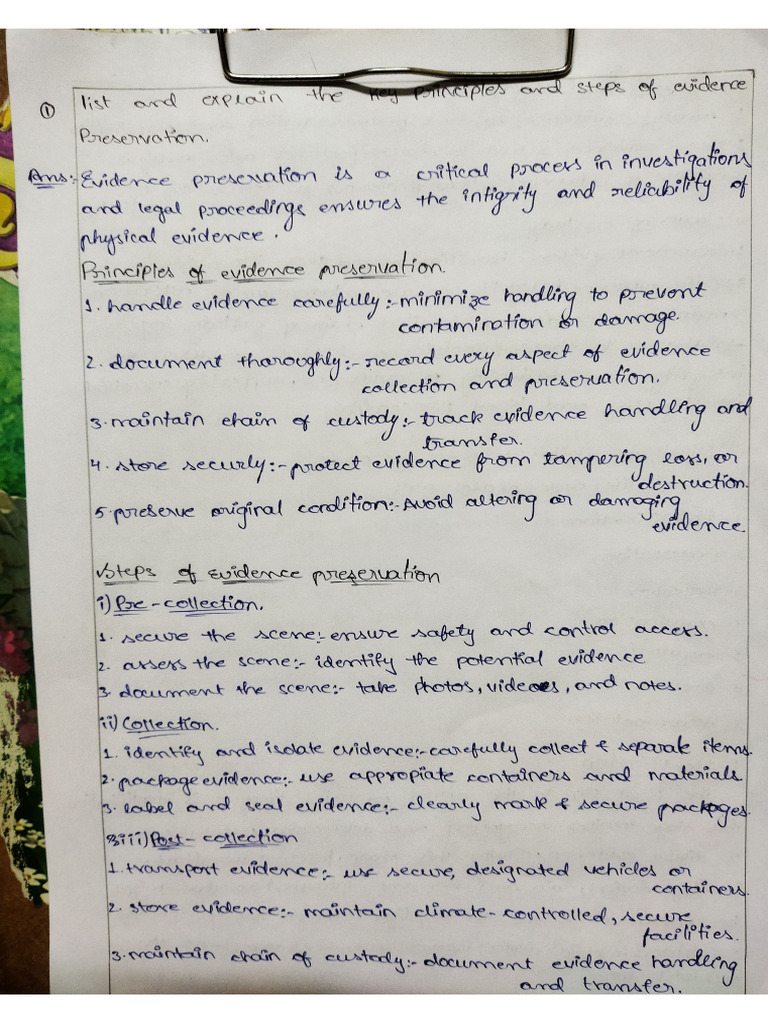 ① list and explain the key principles and steps of evidence
Preservation.
Ans:- Evidence preservation is a critical process in investigations
and legal proceedings ensures the intigrity and reliability of
physical evidence.
Principles of evidence preservation.
1. handle evidence carefully:- minimize handling to prevent
contamination or damage.
2. document thoroughly:- record every aspect of evidence
collection and preservation.
3. maintain chain of custody:- track evidence handling and
transfer.
4. store securly:- protect evidence from tampering loss, or
destruction.
5. preserve original condition:- Avoid altering or damaging
evidence.
Steps of evidence preservation
i) Pre-collection.
1. secure the scene:- ensure safety and control access.
2. assess the scene:- identify the potential evidence
3. document the scene:- take photos, videos, and notes.
ii) Collection.
1. identify and isolate evidence:- carefully collect & separate items.
2. package evidence:- use appropiate containers and materials.
3. label and seal evidence:- clearly mark & secure packages.
iii) Post-collection
1. transport evidence:- use secure, designated vehicles or
containers.
2. store evidence:- maintain climate-controlled, secure
facilities.
3. maintain chain of custody:- document evidence handling
and transfer.